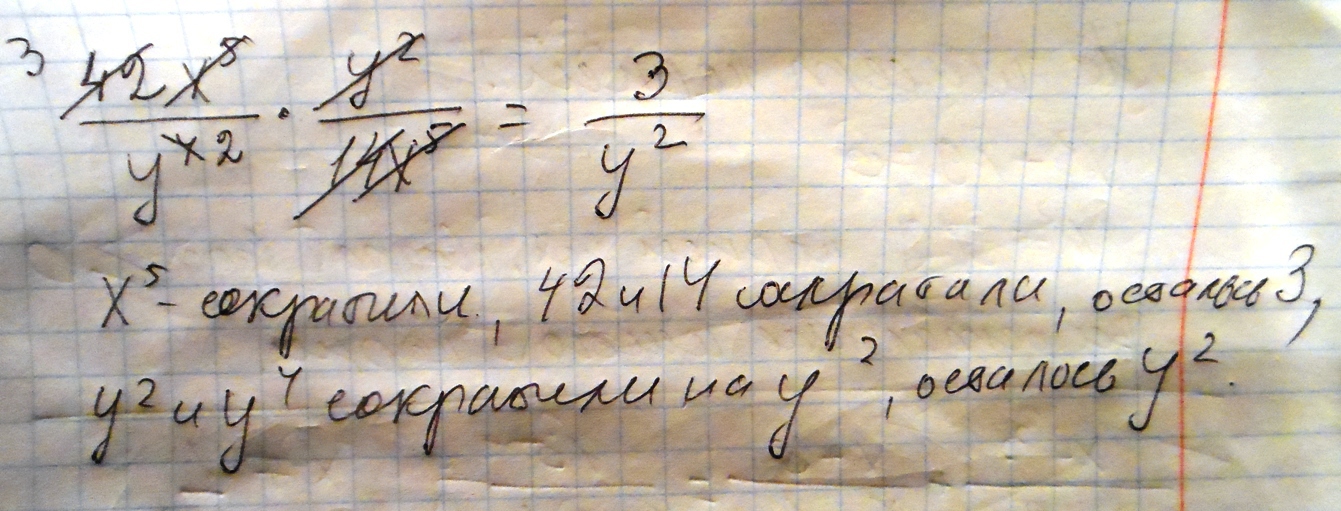 3
42x⁵/y⁴ 2 · y²/14x⁵ = 3/y²
x⁵ - сократили, 42 и 14 сократили, осталось 3,
y² и y⁴ сократили на y², осталось y².